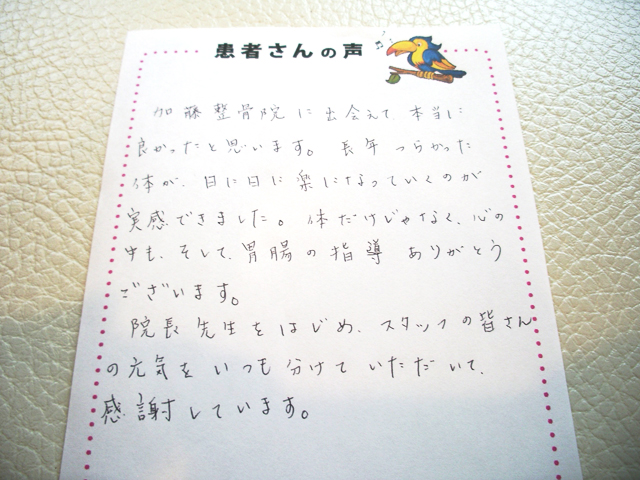 患者さんの声
加藤整骨院に出会えて、本当に
良かったと思います。長年つらかった
体が、日に日に楽になっていくのが
実感できました。体だけじゃなく、心の
中も、そして、胃腸の指導ありがとう
ございます。
院長先生をはじめ、スタッフの皆さん
の元気をいつも分けていただいて、
感謝しています。